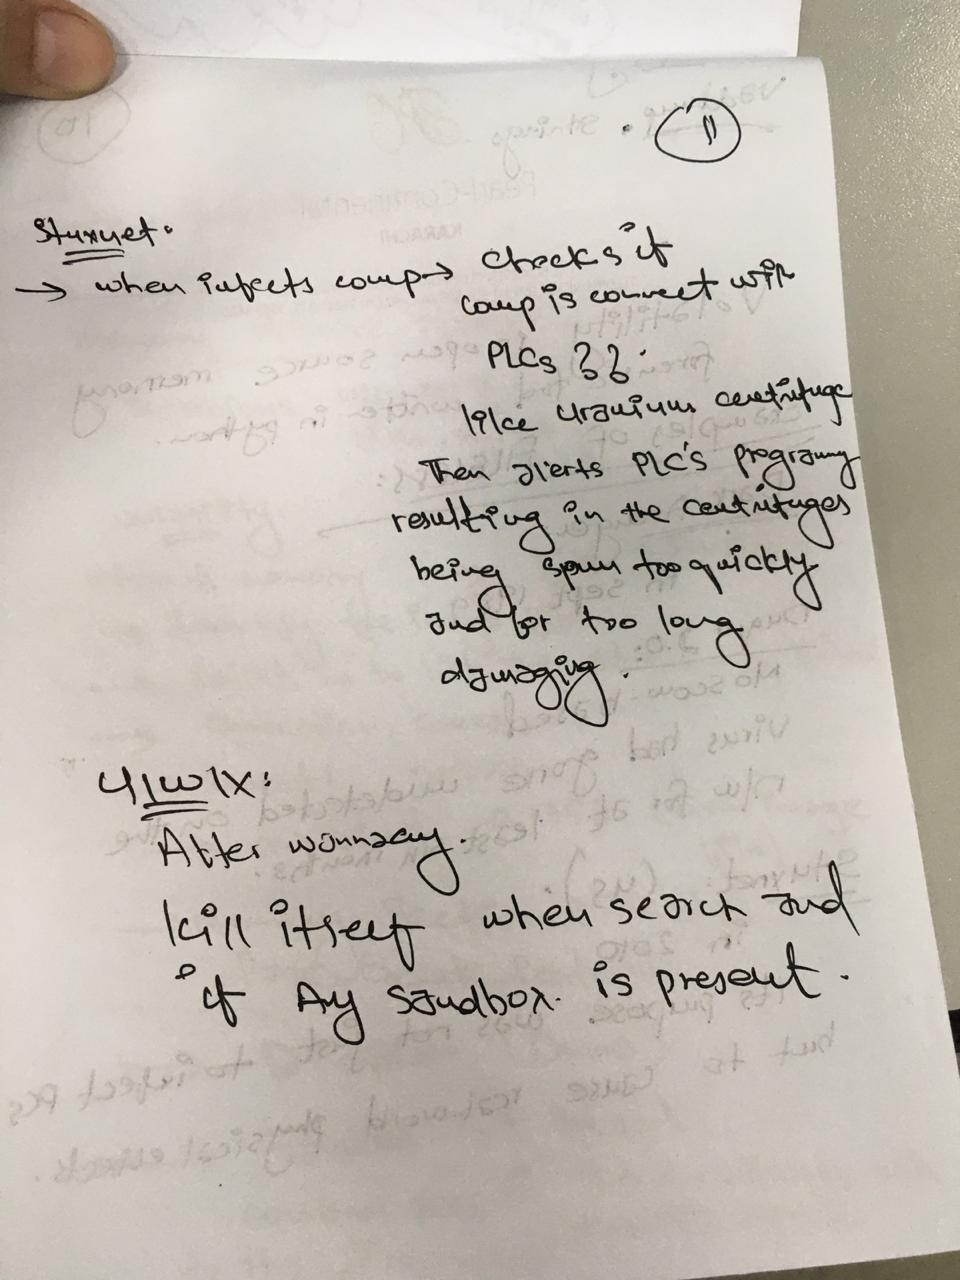 11
Stuxnet:
→ when infects comp → checks if
comp is connect with
PLCs ??.
like uranium centrifuge
Then alerts PLC's programg
resulting in the centrifuges
being spun too quickly
and for too long
damaging.
UIWIX:
After wannacry.
kill itself when search and
if Any sandbox. is present.